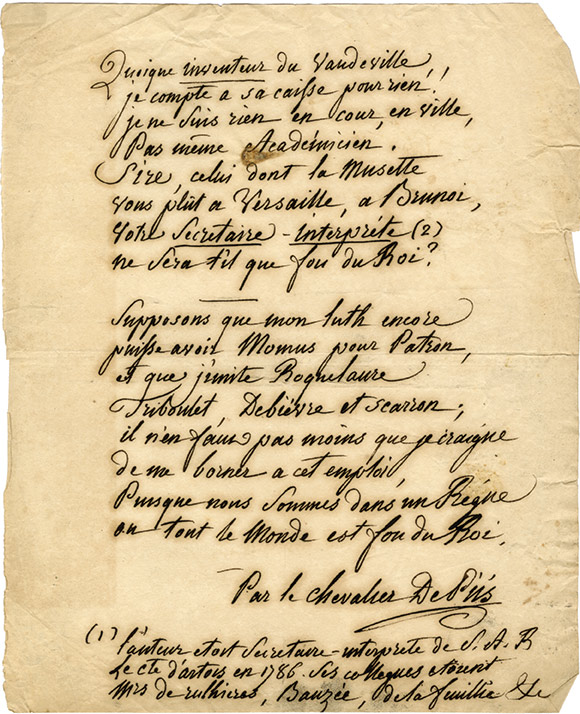 Quoique inventeur du Vaudeville,
je compte a sa caisse pour rien!
je ne suis rien en cour, en ville,
Pas même Académicien.
Sire, celui dont la Musette
vous plût a Versaille, a Brunoi,
votre Secretaire-interpréte (2)
ne sera t'il que fou du Roi?
Supposons que mon luth encore
puisse avoir Momus pour Patron,
et que j'imite Roquelaure
Triboulet, Debièvre et Scarron;
il n'en faut pas moins que je craigne
de me borner a cet emploi,
Puisque nous sommes dans un Régne
ou tout le Monde est fou du Roi.
Par le chevalier De Piis
(1) l'auteur etoit Secretaire-interprete de S. A. R
Le cte d'artois en 1786. Ses collegues etoient
Mrs de rulhieres, Bauzée, de la feuillie &c